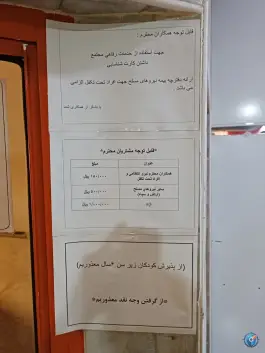 قابل توجه همکاران محترم:
جهت استفاده از خدمات رفاهی مجتمع
داشتن کارت شناسایی
و ارائه دفترچه بیمه نیروهای مسلح جهت افراد تحت تکفل الزامی
می باشد
با تشکر از همکاری شما
«قابل توجه مشتریان محترم»
عنوان مبلغ
همکاران محترم نیرو انتظامی و
افراد تحت تکفل
سایر نیروهای مسلح
(ارتش و سپاه)
آزاد
(از پذیرش کودکان زیر سن ۶سال معذوریم)
«از گرفتن وجه نقد معذوریم»